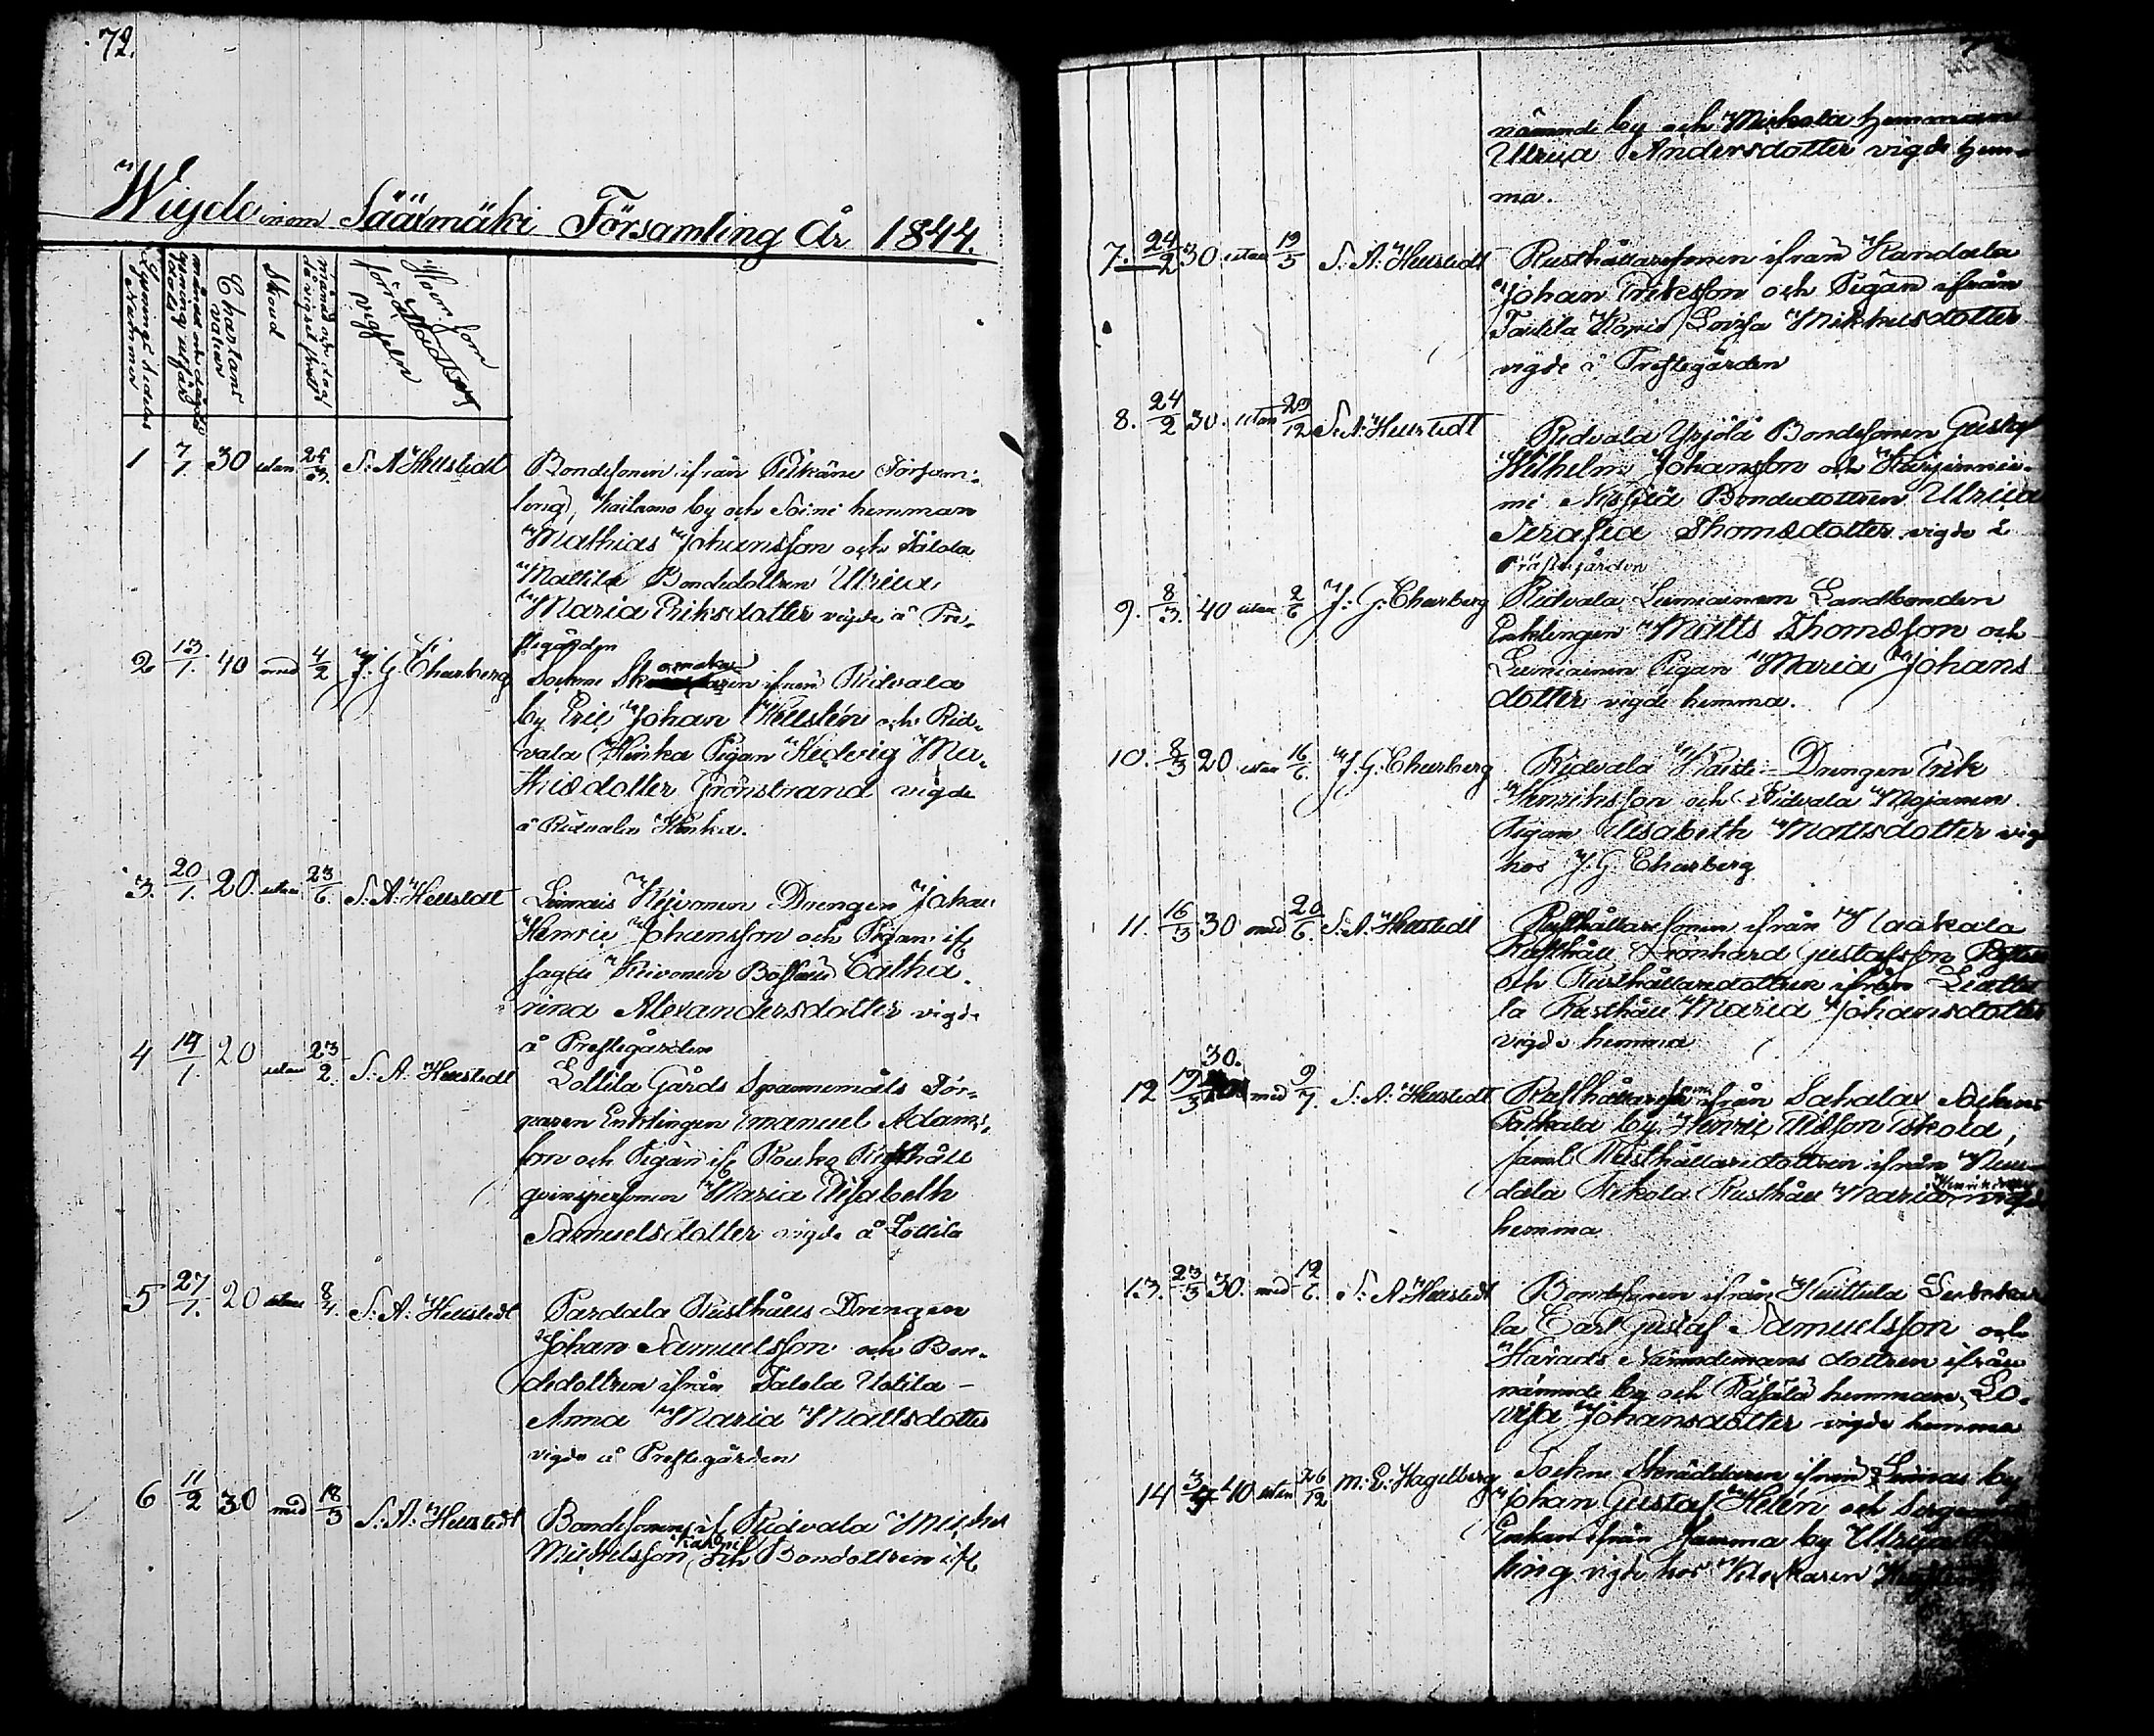 72.
Wigde inom Sääxmäki Församling År 1844.
Lysnings Sedelns Nummer
månad och dag då lysning utfärd
Chartans valuer
Skoud
månad och dag då vigsel skett
Hvar som förrättat vigseln
1 7/1. 30 utan 25/3. S. A. Hellstedt Bondesonen ifrån Pelkäne Försam-
ling, Kailamo by och Soini hemman
Mathias Johansson och Tålola
Mattila Bondedottren Ulrica
Maria Eriksdotter vigde å Pre-
stegården
2 13/1. 40 med 4/2 J. G. Charberg Sockne ifrån Ridvala
by Eric Johan Hellstén och Rid-
vala Heinka Pigan Hedvig Ma-
thisdotter Grönstrand vigde
å Ridvala Heinka.
3. 20/1. 20. utan 23/6. S. A. Hellstedt Drengen Johan
Henric Johansson och Pigan if
Catha-
rina Alexandersdotter vigde
å Prestegården
4 14/1. 20 utan 23/2. S. A. Hellstedt
Lottila Gårds Spannemåls För-
varen Enklingen Emanuel Adams-
son och Pigan if Rusthåll
qvinspersonen Maria Elisabeth
Samuelsdotter vigde å Lottila
5 27/1. 20 utan 8/4. S. A. Hellstedt Pardala Rusthålls Drengen
Johan Samuelsson och Bon-
dedottren ifrån Talola Uotila -
Anna Maria Mattsdotter
vigde å Prestegården
6 11/2 30 med 18/3 S. A. Hellstedt Bondesonen if Ridvala Michel
Michelsson och Bondottren if
nämnde by och Mickola hemman
Ulrica Andersdotter vigde hem-
ma.
7. 24/2 30 utan 19/5 S. A. Hellstedt Rusthållaresonen ifrån Kandala
Johan Eriksson och Pigan ifrån
Lovisa Mikkelsdotter
vigde å Prestegården
8. 24/2 30. utan 29/12 S. A. Hellstedt
Ridvala Yrjölä Bondesonen Gustaf
Wilhelm Johansson och
Bondedottren Ulrica
Serafia Thomsdotter vigde å
Prästegården
9. 8/3. 40 utan 2/6 J. G. Charberg Ridvala Lumiainen Landbonden
Enklingen Matts Thomsson och
Lumiainen Pigan Maria Johans
dotter vigde hemma.
10. 8/3 20 utan 16/6. J. G. Charberg Ridvala Drengen Erik
Henriksson och Ridvala
Pigan Elisabeth Mattsdotter vig
hos J. G. Charberg
11. 16/3 30 med 20/6. S. A. Hellstedt Rusthållaresonen ifrån
Rusthåll Leonhard Gustafsson
och Rusthållaredottren ifrån
la Rusthåll Maria Johansdotter
vigde hemma
12 19/3 30. med 9/7. S. A. Hellstedt Rusthållareson ifrån Sahalax Sockn
by Henric
saml Rusthållaredottren ifrån
dala Rusthåll Maria vigde
hemma
13. 23/3 30. med 12/6. S. A. Hellstedt Bondesonen ifrån Huittula
la Carl Gustaf Samuelsson och
Härads Nämndemans dottren ifrån
nämnde by och hemman Lo-
visa Johansdotter vigde hemma
14 40 utan 26/12 M. E. Hagelberg Sockne Skräddaren ifrån by
Johan Gustaf Helén och
Enkan ifrån samma by Ulrica
ling vigde hos Klockaren